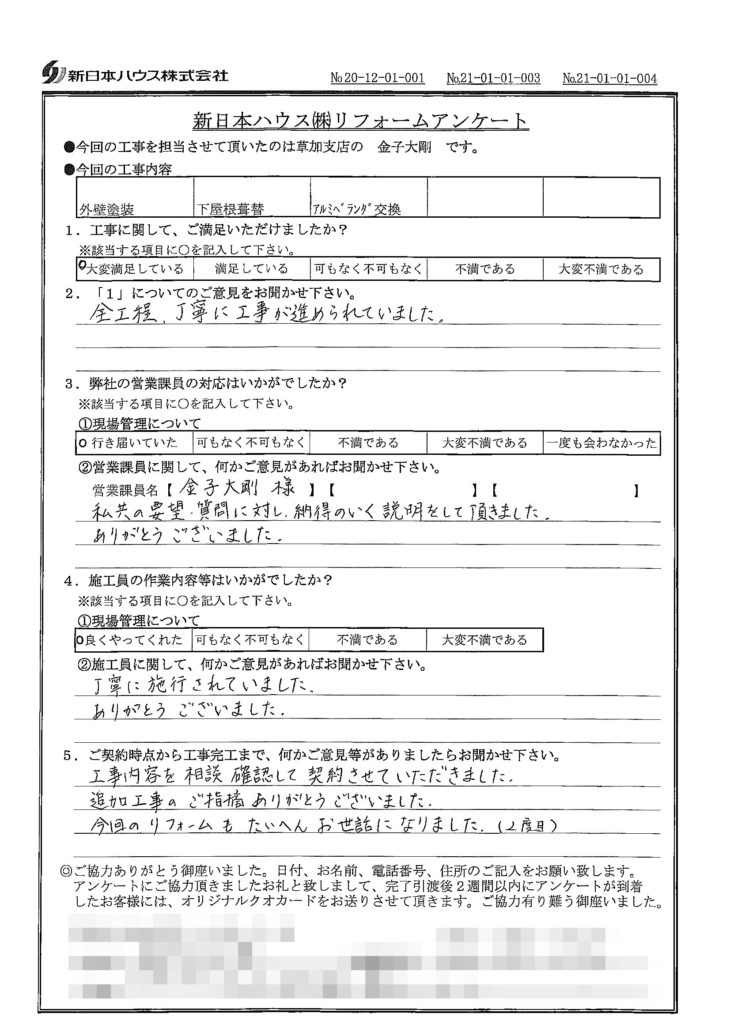 新日本ハウス株式会社 №20-12-01-001 №21-01-01-003 №21-01-01-004
新日本ハウス㈱リフォームアンケート
●今回の工事を担当させて頂いたのは草加支店の 金子大剛 です。
●今回の工事内容
外壁塗装 下屋根葺替 ｱﾙﾐﾍﾞﾗﾝﾀﾞ交換
1．工事に関して、ご満足いただけましたか？
※該当する項目に○を記入して下さい。
○大変満足している 満足している 可もなく不可もなく 不満である 大変不満である
2．「1」についてのご意見をお聞かせ下さい。
全工程、丁寧に工事が進められていました。
3．弊社の営業課員の対応はいかがでしたか？
※該当する項目に○を記入して下さい。
①現場管理について
○行き届いていた 可もなく不可もなく 不満である 大変不満である 一度も会わなかった
②営業課員に関して、何かご意見があればお聞かせ下さい。
営業課員名【 金子大剛 様 】【 】【 】
私共の要望・質問に対し、納得のいく説明をして頂きました。
ありがとうございました。
4．施工員の作業内容等はいかがでしたか？
※該当する項目に○を記入して下さい。
①現場管理について
○良くやってくれた 可もなく不可もなく 不満である 大変不満である
②施工員に関して、何かご意見があればお聞かせ下さい。
丁寧に施行されていました。
ありがとうございました。
5．ご契約時点から工事完工まで、何かご意見等がありましたらお聞かせ下さい。
工事内容を相談 確認して契約させていただきました。
追加工事のご指摘ありがとうございました。
今回のリフォームもたいへんお世話になりました。(2度目)
◎ご協力ありがとう御座いました。日付、お名前、電話番号、住所のご記入をお願い致します。
アンケートにご協力頂きましたお礼と致しまして、完了引渡後2週間以内にアンケートが到着
したお客様には、オリジナルクオカードをお送りさせて頂きます。ご協力有り難う御座いました。